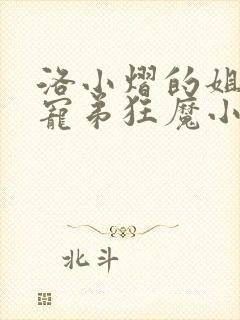 洛小熠的姐
寵弟狂魔小
北斗